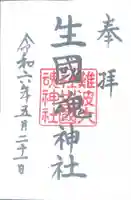 奉拝
難波大社
生國魂神社
生國魂神社
令和六年五月二十一日